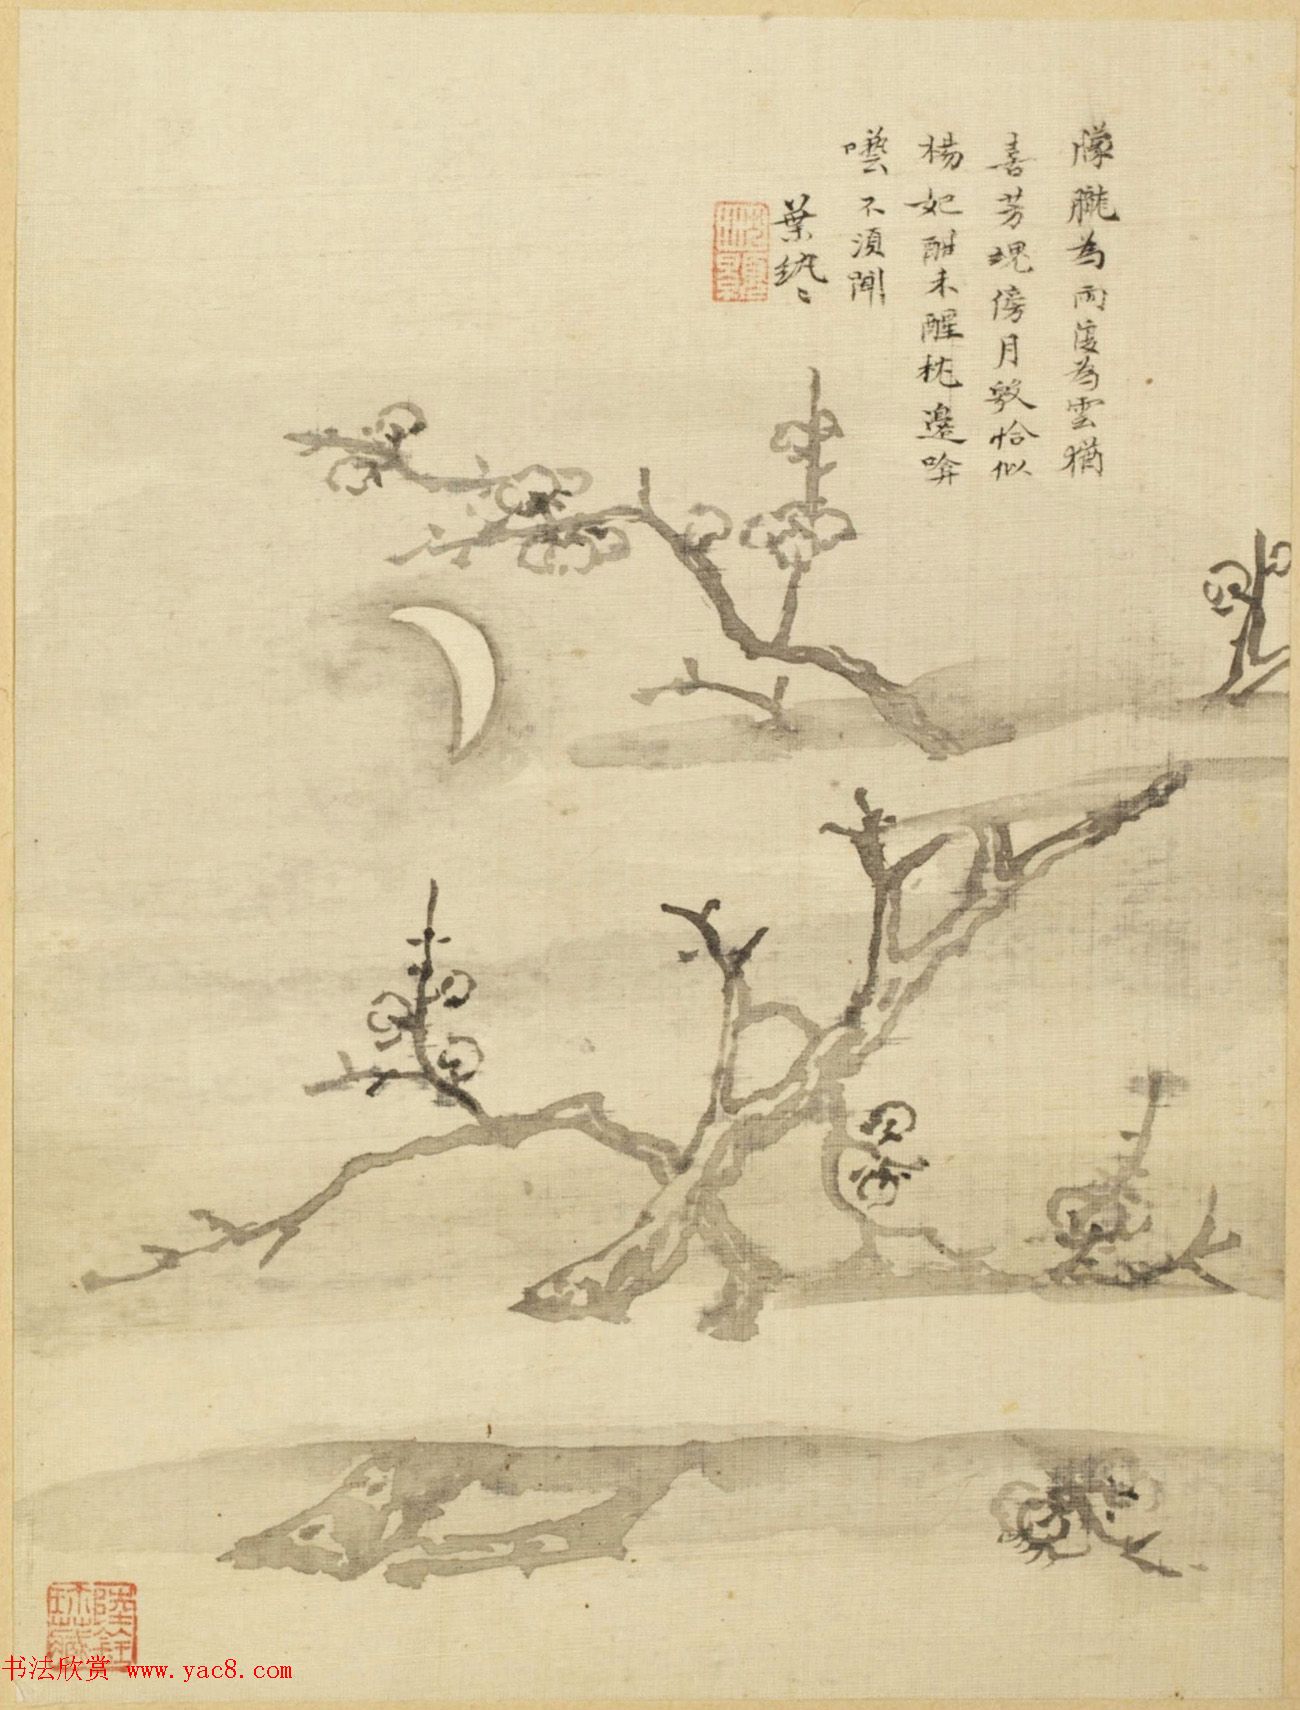 朦朧為雨復為雲猶
喜芳魂傍月敦恰似
楊妃酣未醒枕邊
囈不須聞
葉
陸鈺
珎藏
书法欣赏 www.yac8.com